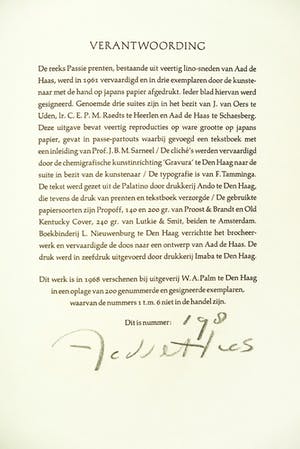 VERANTWOORDING
De reeks Passie prenten, bestaande uit veertig lino-sneden van Aad de
Haas, werd in 1961 vervaardigd en in drie exemplaren door de kunste-
naar met de hand op japans papier afgedrukt. Ieder blad hiervan werd
gesigneerd. Genoemde drie suites zijn in het bezit van J. van Oers te
Uden, Ir. C. E. P. M. Raedts te Heerlen en Aad de Haas te Schaesberg.
Deze uitgave bevat veertig reproducties op ware grootte op japans
papier, gevat in passe-partouts waarbij gevoegd een tekstboek met
een inleiding van Prof. J. B. M. Sarneel / De cliché's werden vervaardigd
door de chemigrafische kunstinrichting 'Gravura' te Den Haag naar de
suite in bezit van de kunstenaar / De typografie is van F. Tamminga.
De tekst werd gezet uit de Palatino door drukkerij Ando te Den Haag,
die tevens de druk van prenten en tekstboek verzorgde / De gebruikte
papiersoorten zijn Propoff, 140 en 200 gr. van Proost & Brandt en Old
Kentucky Cover, 240 gr. van Lutkie & Smit, beiden te Amsterdam.
Boekbinderij L. Nieuwenburg te Den Haag verrichtte het brocheer-
werk en vervaardigde de doos naar een ontwerp van Aad de Haas. De
druk werd in zeefdruk uitgevoerd door drukkerij Imaba te Den Haag.
Dit werk is in 1968 verschenen bij uitgeverij W. A. Palm te Den Haag
in een oplage van 200 genummerde en gesigneerde exemplaren,
waarvan de nummers 1 t.m. 6 niet in de handel zijn.
Dit is nummer: 198
Aad de Haas